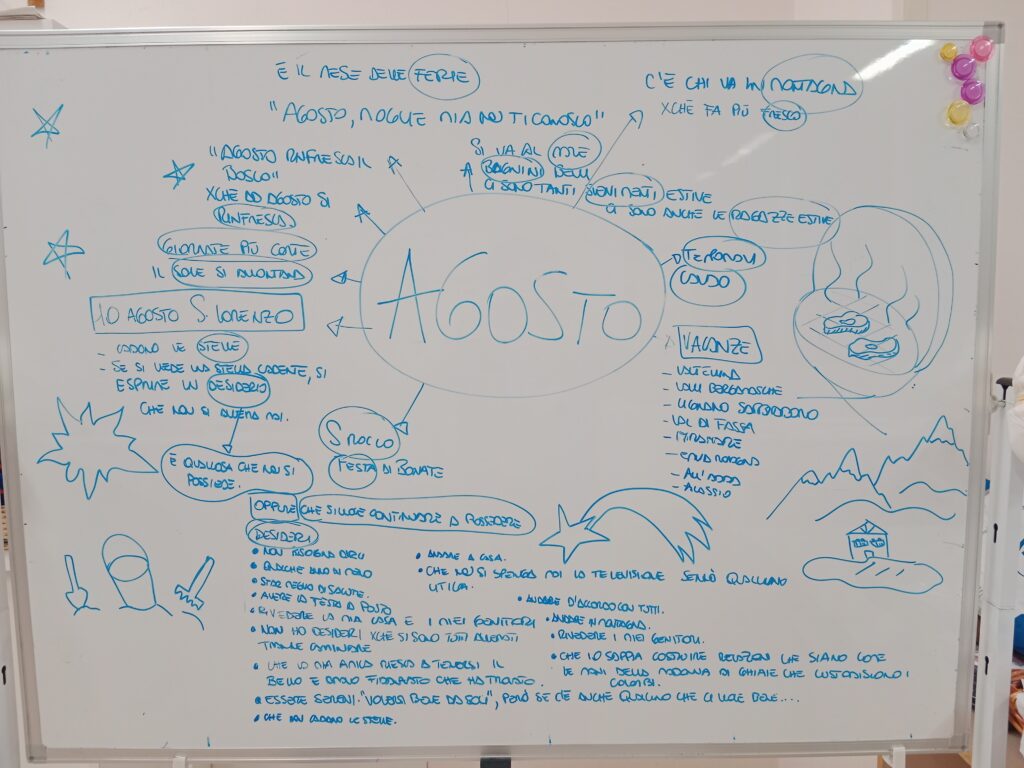 È IL MESE DELLE FERIE
"AGOSTO, MOGLIE MIA NON TI CONOSCO"
C'È CHI VA IN MONTAGNA
XCHÈ FA PIÙ FRESCO
SI VA AL MARE
BAGNINI BELLI
CI SONO TANTI EVENTI ESTIVI
CI SONO ANCHE LE RAGAZZE ESTIVE
"AGOSTO RINFRESCA IL
BOSCO"
XCHÈ AD AGOSTO SI
RINFRESCA
GIORNATE PIÙ CORTE
IL SOLE SI ALLONTANA
AGOSTO
TEMPORALI
CALDO
10 AGOSTO S. LORENZO
- CADONO LE STELLE
- SE SI VEDE UNA STELLA CADENTE, SI
ESPRIME UN DESIDERIO
CHE NON SI AVVERA MAI.
È QUALCOSA CHE NON SI
POSSIEDE.
OPPURE CHE SI VUOLE CONTINUARE A POSSEDERE
S ROCCO
FESTA DI BONATE
VACANZE
- VALTELLINA
- VALLI BERGAMASCHE
- LIGNANO SABBIADORO
- VAL DI FASSA
- MIRAMARE
- EMILIA ROMAGNA
- ALL'ADDA
- ALASSIO
DESIDERI
• NON BISOGNA DIRLI
• QUALCHE ANNO IN MENO
• STAR MEGLIO DI SALUTE.
• AVERE LA TESTA A POSTO
• RIVEDERE LA MIA CASA E I MIEI GENITORI
• NON HO DESIDERI XCHÈ SI SONO TUTTI AVVERATI
TRANNE CAMMINARE
• CHE LA MIA AMICA RIESCA A TENERSI IL
BELLO E BRAVO FIDANZATO CHE HA TROVATO.
• ESSERE SERENI. "VOLERSI BENE DA SOLI", PERÒ SE C'È ANCHE QUALCUNO CHE CI VUOLE BENE....
• CHE NON CADANO LE STELLE.
• ANDARE A CASA.
• CHE NON SI SPENGA MAI LA TELEVISIONE SENNÒ QUALCUNO
URLA.
• ANDARE D'ACCORDO CON TUTTI.
• ANDARE IN MONTAGNA.
• RIVEDERE I MIEI GENITORI.
• CHE IO SAPPIA COSTRUIRE RELAZIONI CHE SIANO COME
LE MANI DELLA MADONNA DI GHIAIE CHE CUSTODISCONO I
COLOMBI.